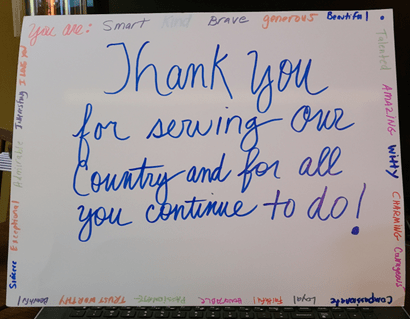 You are: Smart Kind Brave generous Beautiful
Thank You
for serving our
Country and for all
you continue to do!
Talented AMAZING Witty CHARMING Courageous
Compassionate Loyal Faithful HONORABLE PASSIONATE TRUSTWORTHY Beautiful
Sincere Exceptional Admirable Interesting I LOVE YOU